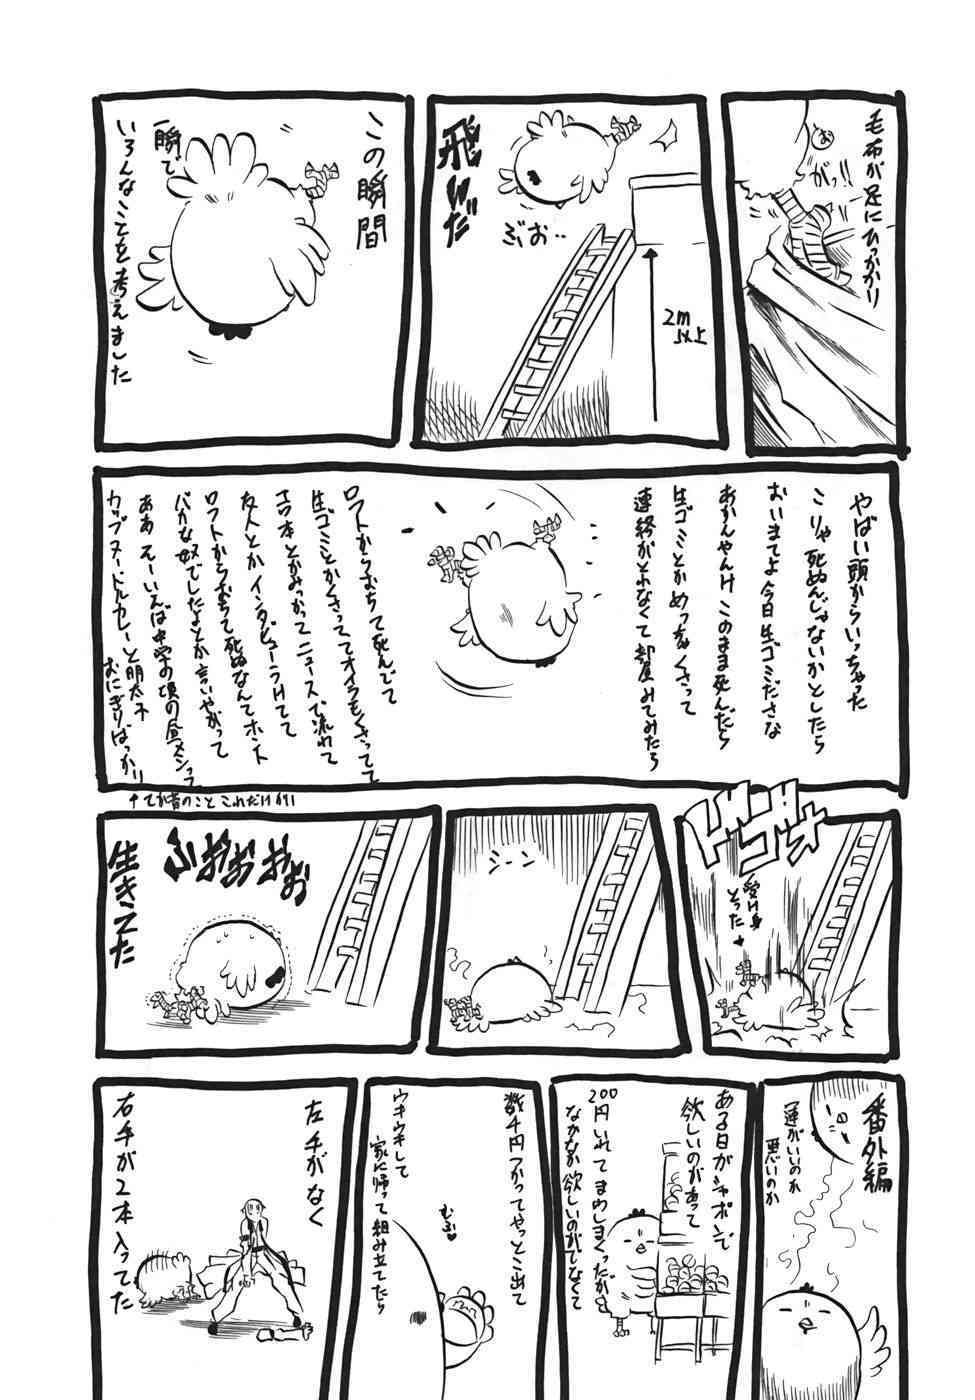 毛布が足にひっかかり
お
がっ!!
飛んだ
ぶお‥
2m
以上
この瞬間
一瞬で
いろんなことを考えました
やばい頭からいっちゃった
こりゃ死ぬんじゃないかとしたら
おいまてよ今日生ゴミださな
あかんやんけこのまま死んだら
生ゴミとかめっちゃくさって
連絡がとれなくて部屋みてみたら
ロフトからおちて死んでて
生ゴミとかくさっててオイラもくさってて
エロ本とかみっかってニュースで流れて
友人とかインタビューうけてて
ロフトからおちて死ぬなんてホント
バカな奴でしたよとか言いやがって
ああそーいえば中学の頃の昼メシって
カップヌードルカレーと明太子
おにぎりばっかり
↑てか昔のことこれだけかい
ドゴォ
受け身
とった
シーン
ふおおおおお
生きてた
番外編
運がいいのか
悪いのか
ある日ガシャポンで
欲しいのがあって
200円いれてまわしまくったが
なかなか欲しいのがでなくて
数千円つかってやっとこ出て
ウキウキして
家に帰って組み立てたら
むふ♥
左手がなく
右手が2本入ってた